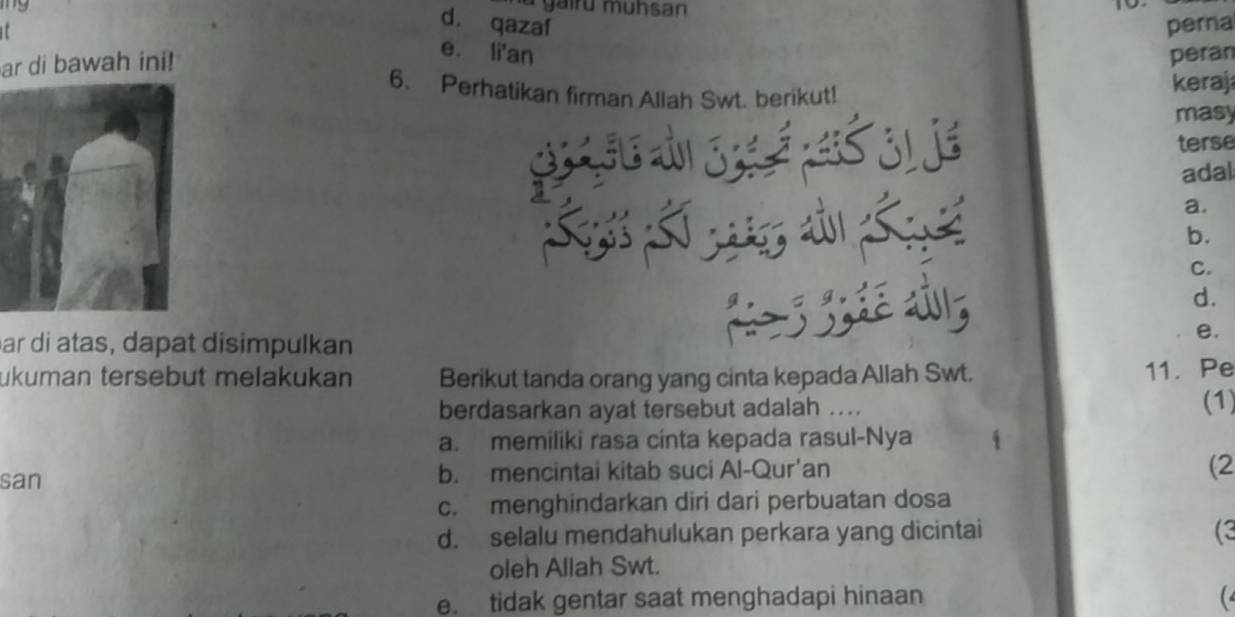 ar di bawah ini!
ar di atas, dapat disimpulkan
ukuman tersebut melakukan
san
gairu muhsan
d. qazaf
e. li'an
6. Perhatikan firman Allah Swt. berikut!
قُلْ اِنْ كُنْتُمْ تُحِبُّوْنَ اللّٰهَ فَاتَّبِعُوْنِيْ
يُحْبِبْكُمُ اللّٰهُ وَيَغْفِرْ لَكُمْ ذُنُوْبَكُمْ ۗ
وَاللّٰهُ غَفُوْرٌ رَّحِيْمٌ
Berikut tanda orang yang cinta kepada Allah Swt.
berdasarkan ayat tersebut adalah ....
a. memiliki rasa cinta kepada rasul-Nya
b. mencintai kitab suci Al-Qur'an
c. menghindarkan diri dari perbuatan dosa
d. selalu mendahulukan perkara yang dicintai
oleh Allah Swt.
e. tidak gentar saat menghadapi hinaan
perna
peran
keraj
masy
terse
adal
a.
b.
c.
d.
e.
11. Pe
(1)
(2
(3